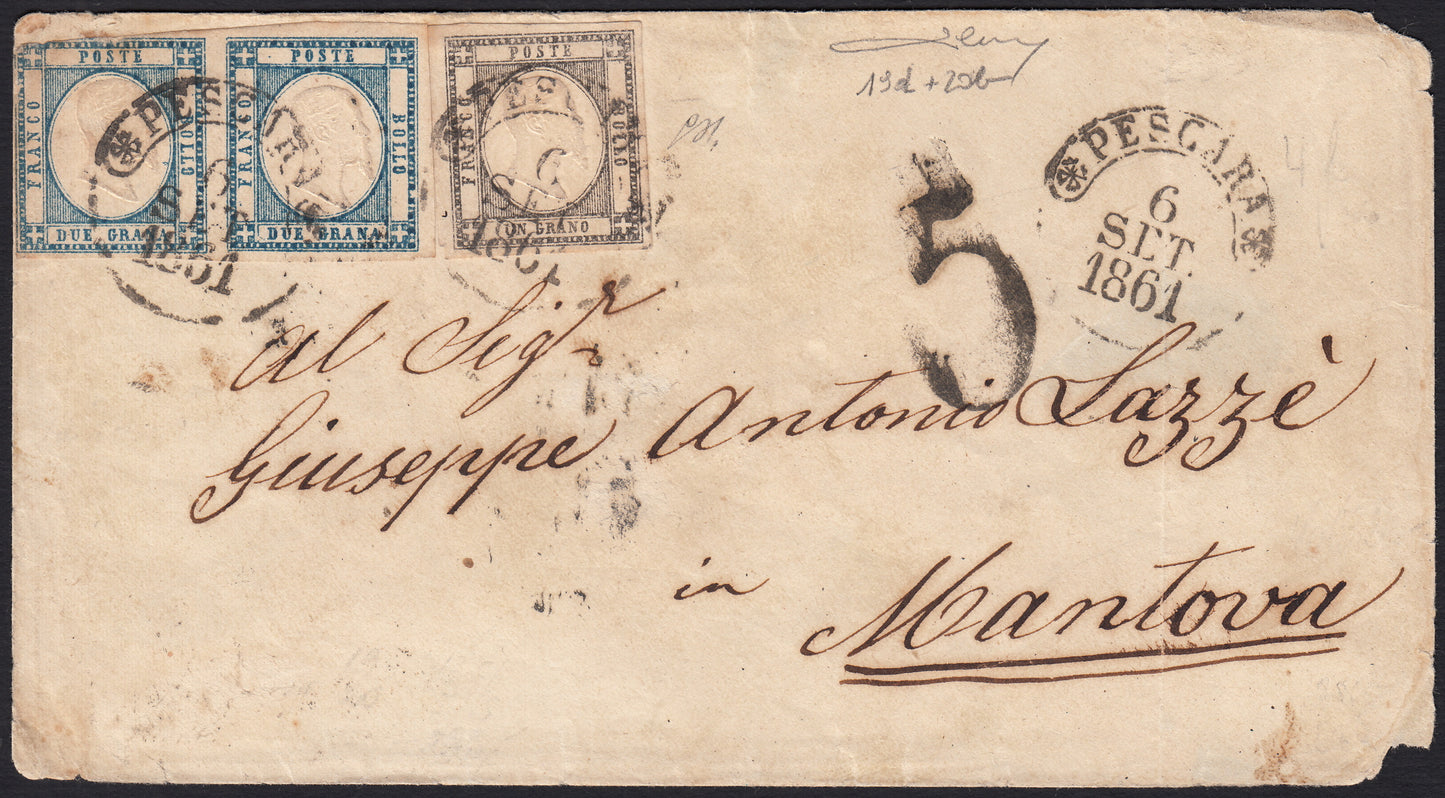 POSTE
FRANCO
BOLLO
DUE GRANA
POSTE
FRANCO
BOLLO
DUE GRANA
POSTE
FRANCO
BOLLO
UN GRANO
PESCARA
6
SET
1861
PESC
6
SET
1861
19d+20b
5
PESCARA
6
SET.
1861
Al Sigr
Giuseppe Antonio Lazzè
in
Mantova